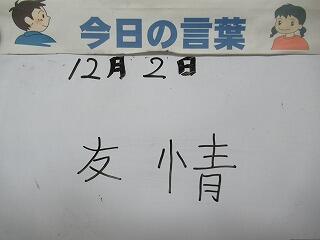 今日の言葉
12月2日
友情